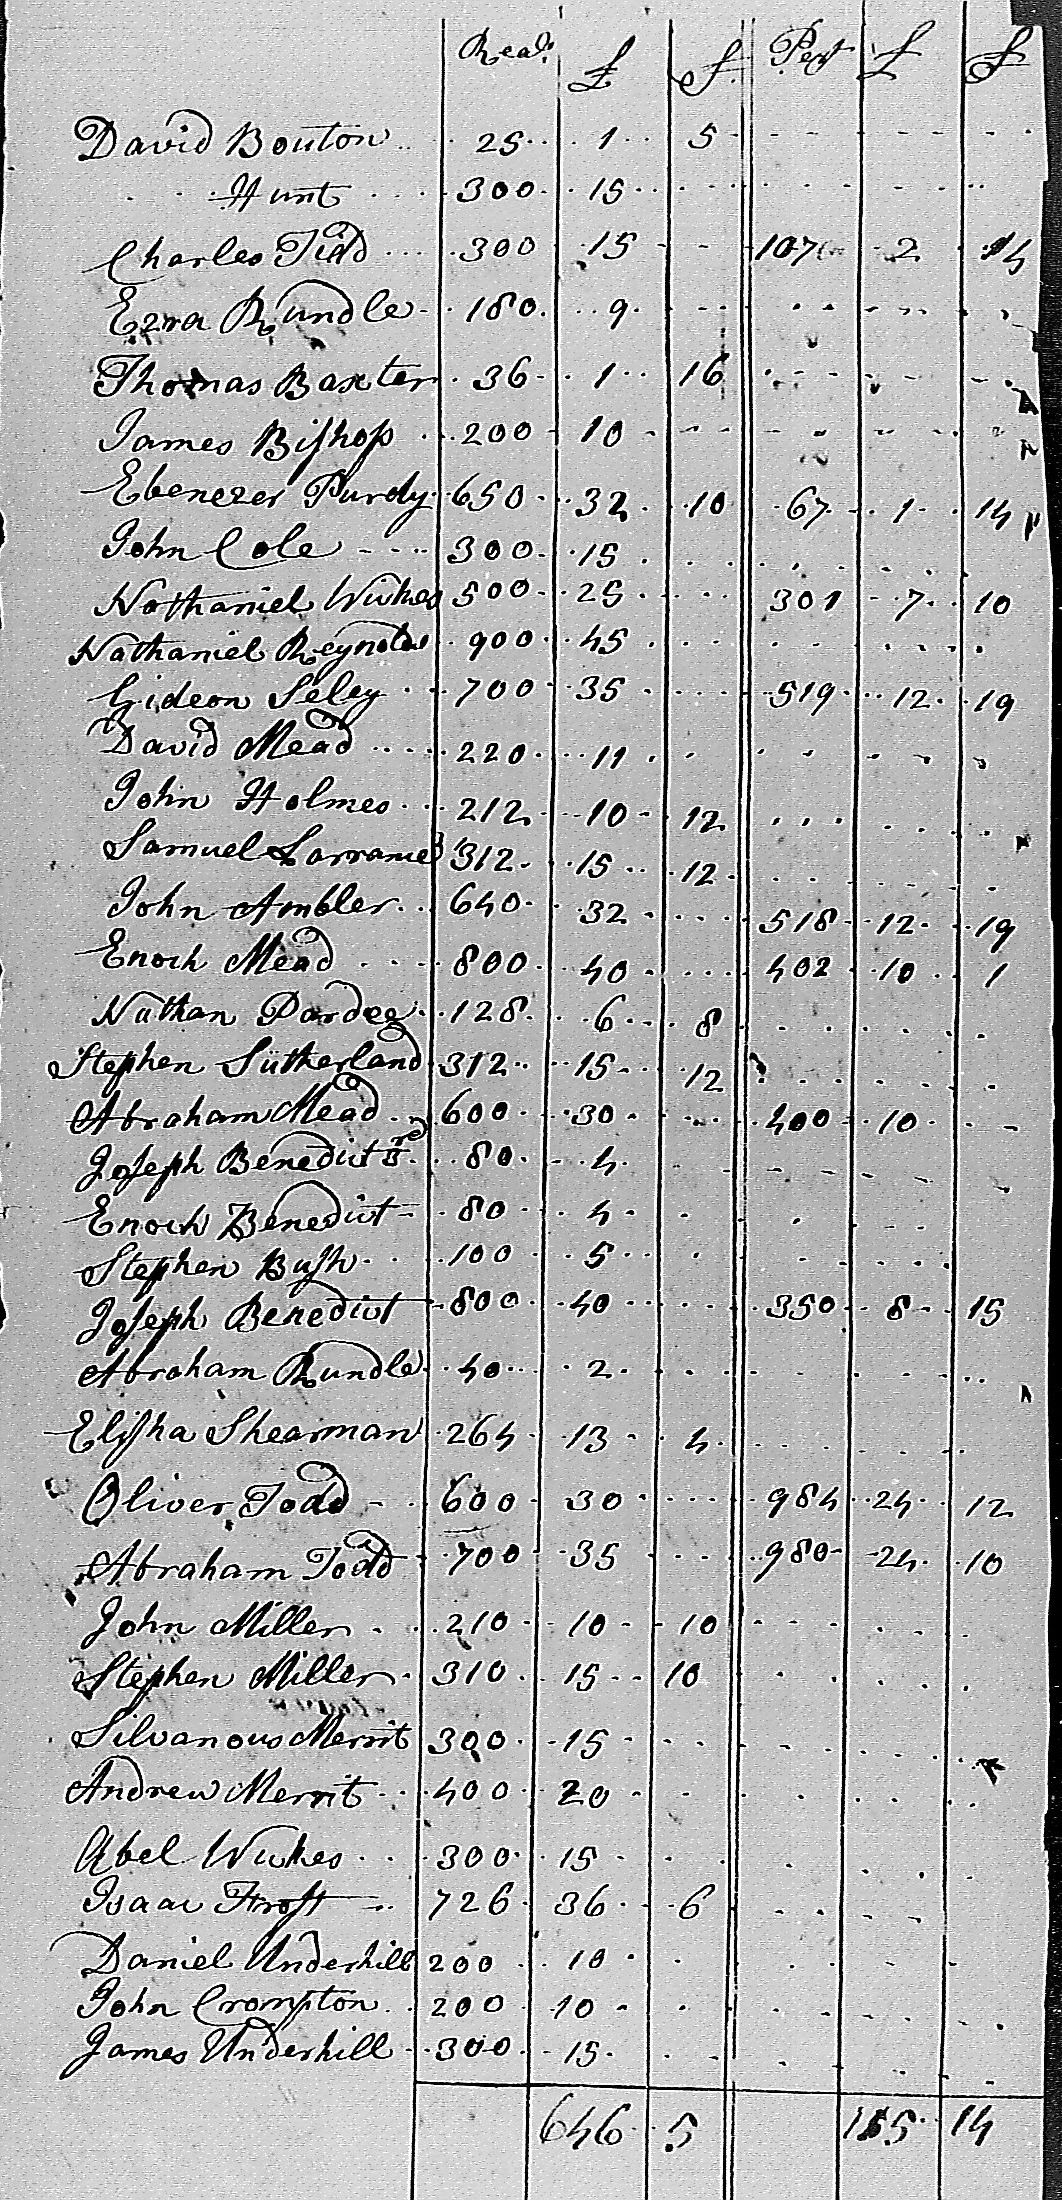 Real £ S Pers £ S
David Bouton 25 1 5
Hunt 300 15
Charles Tidd 300 15 107 2 14
Ezra Rundle 180 9
Thomas Baxter 36 1 16
James Bishop 200 10
Ebenezer Purdy 650 32 10 67 1 14
John Cole 300 15
Nathaniel Wickes 500 25 301 7 10
Nathaniel Reynolds 900 45
Gideon Seley 700 35 519 12 19
David Mead 220 11
John Holmes 212 10 12
Samuel 312 15 12
John Ambler 640 32 518 12 19
Enoch Mead 800 40 402 10 1
Nathan Pardee 128 6 8
Stephen Sutherland 312 15 12
Abraham Mead 600 30 400 10
Joseph Benedict 3rd 80 4
Enoch Benedict 80 4
Stephen Bush 100 5
Joseph Benedict 800 40 350 8 15
Abraham Rundle 40 2
Elisha Shearman 264 13 4
Oliver Todd 600 30 984 24 12
Abraham Todd 700 35 980 24 10
John Miller 210 10 10
Stephen Miller 310 15 10
Silvanous Merrit 300 15
Andrew Merrit 400 20
Abel Wickes 300 15
Isaac Frost 726 36 6
Daniel Underhill 200 10
John Crompton 200 10
James Underhill 300 15
646 5 115 14